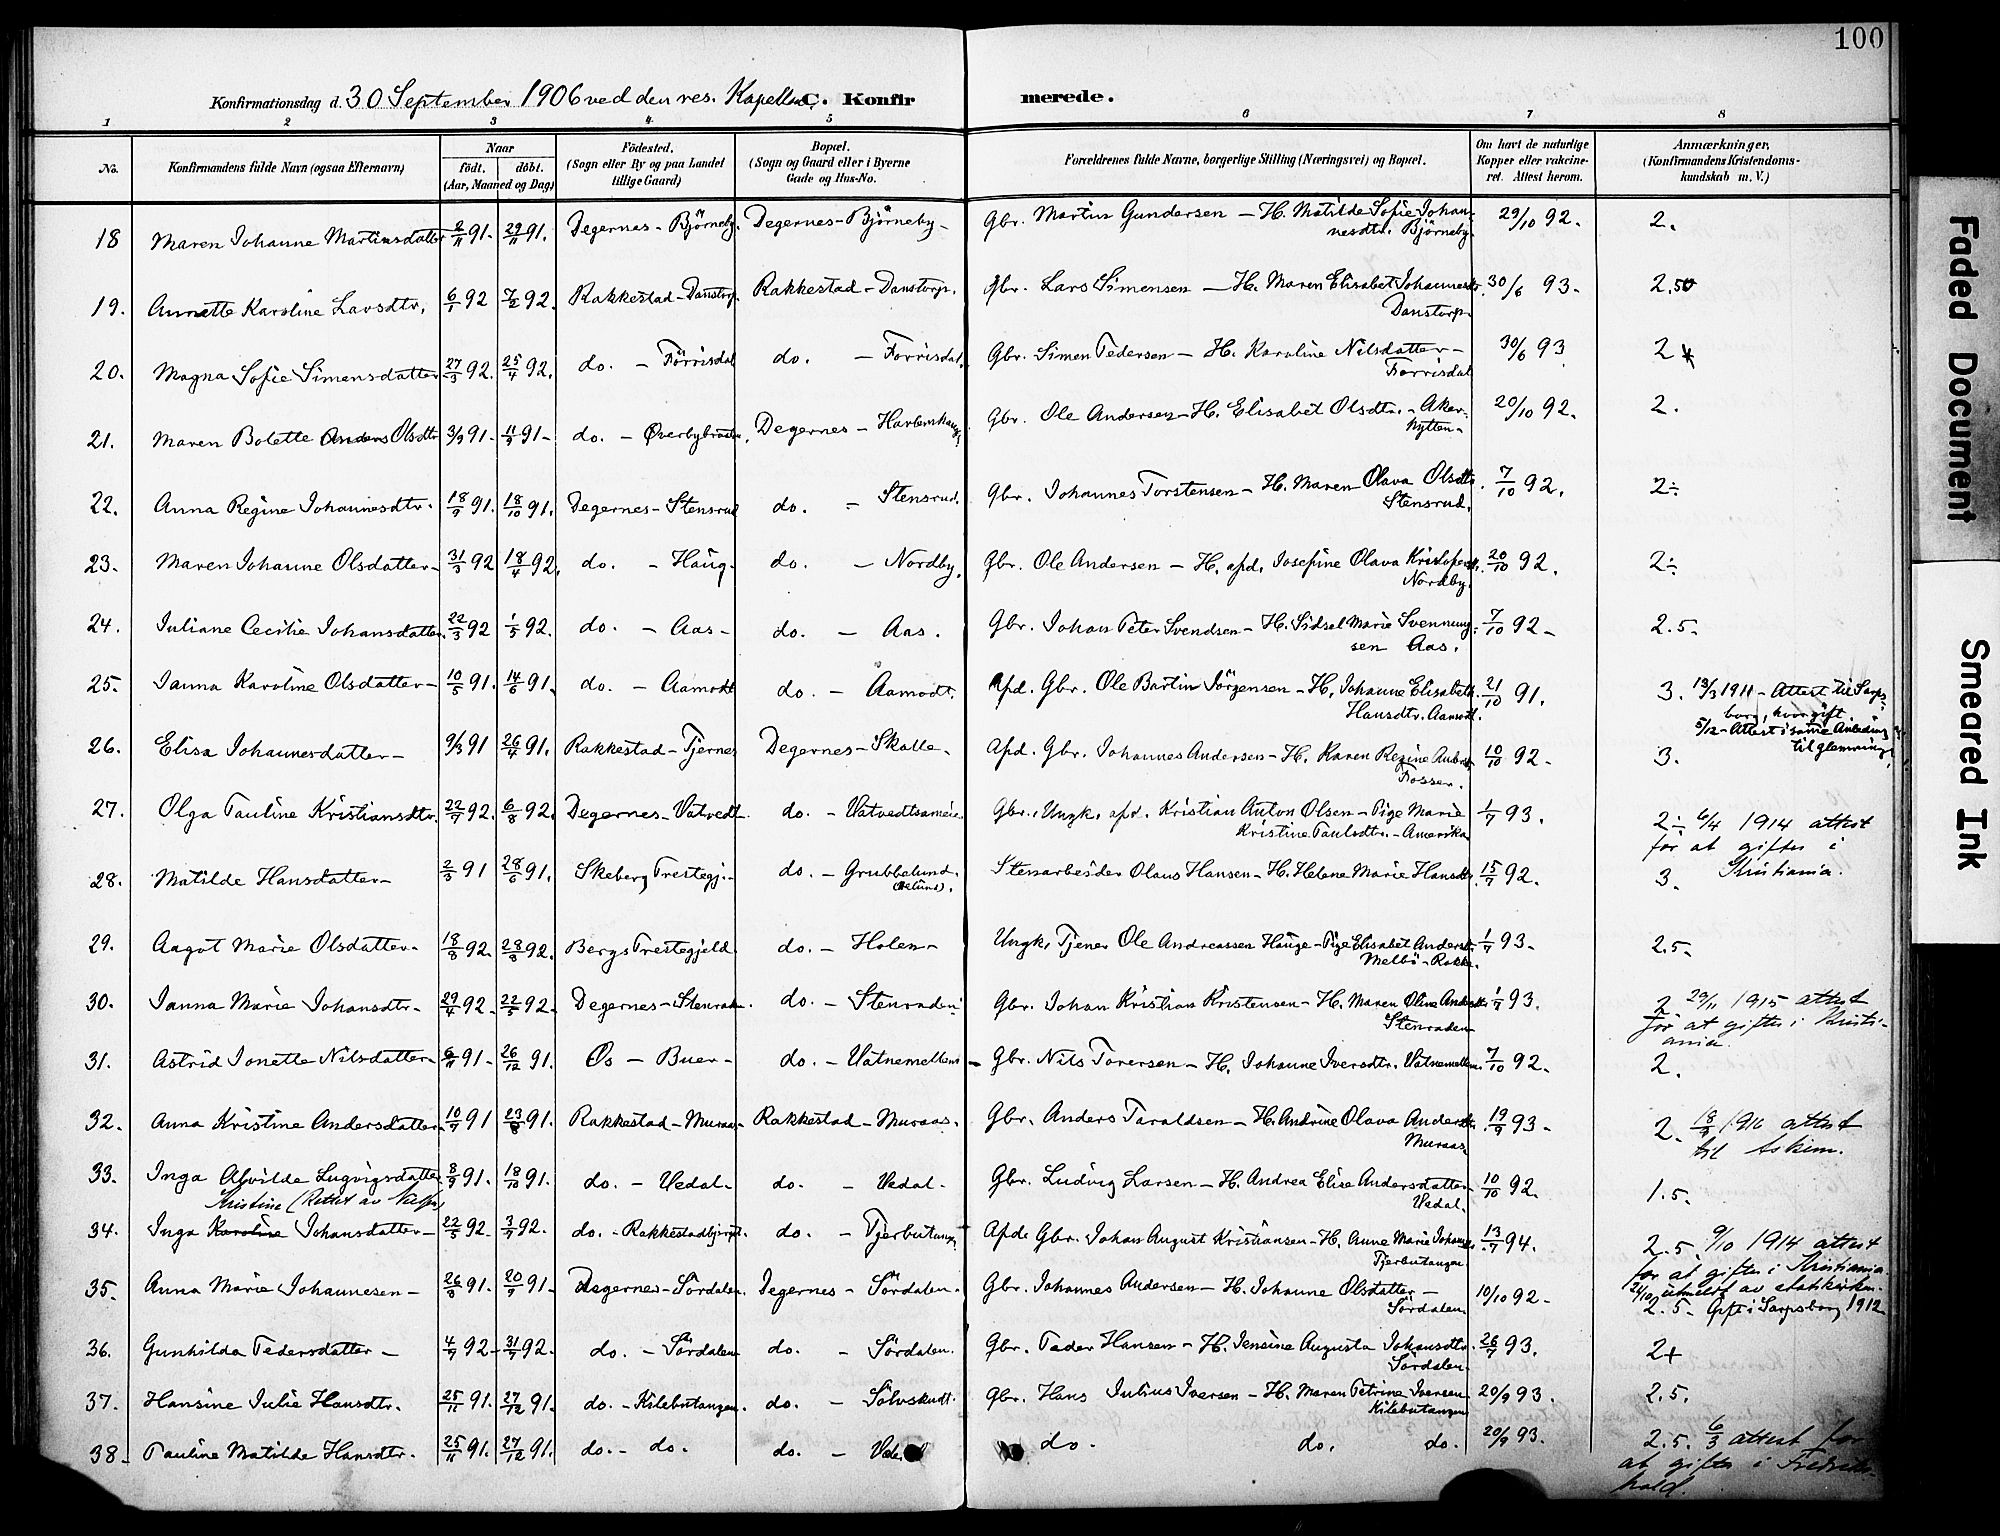 100
Konfirmationsdag d. 30 September 1906 ved den res. Kapellan. C. Konfirmerede.
1 2 3 4. 5 6 7 8
No. Konfirmandens fulde Navn (ogsaa Efternavn) Naar født. døbt. (Aar, Maaned og Dag) Födested. (Sogn eller By og paa Landet tillige Gaard) Bopæl. (Sogn og Gaard eller i Byerne Gade og Hus-No. Forældrenes fulde Navne, borgerlige Stilling (Næringsvei) og Bopæl. Om havt de naturlige Kopper eller vakcineret. Attest herom. Anmærkninger, (Konfirmandens Kristendomskundskab m. V.)
18 Maren Johanne Martinsdatter 2/11 91. 29/11 91. Degernes - Björneby. Degernes - Björneby - Gbr. Martin Gundersen - H. Matilde Sofie Johannesdtr. Björneby. 29/10 92. 2.
19. Annette Karoline Larsdtr. 6/1 92 7/2 92. Rakkestad - Danstorp. Rakkestad - Danstorp. Gbr. Lars Simensen - H. Maren Elisabet Johannesdtr. Danstorp. 30/6 93. 2.50
20. Magna Sofie Simensdatter 27/3 92. 25/4 92. do. - Förrisdal do. - Forrisdal. Gbr. Simen Pedersen - H. Karoline Nilsdatter - Forrisdal 30/6 93. 2
21. Maren Bolette Anders Olsdtr 3/9 91. 11/9 91 - do. - Øverbybraaten. Degernes - Gbr. Ole Andersen - H. Elisabet Olsdtr. - 20/10 92. 2.
22. Anna Regine Johannesdtr. 18/9 91. 18/10 91. Degernes - Stensrud do. - Stensrud. Gbr. Johannes Torstensen - H. Maren Olava Olsdtr. Stensrud. 7/10 92. 2÷
23. Maren Johanne Olsdatter - 31/3 92 18/4 92. do. - Haug. do. - Nordby. Gbr. Ole Andersen - H. afd. Josefine Olava Nordby. 20/10 92. 2÷
24. Juliane Cecilie Johansdatter. 22/3 92 1/5 92. do. - Aas - do. - Aas. Gbr. Johan Peter Svendsen - H. Sidsel Marie Svenningsen Aas. 7/10 92 - 2.5 -
25. Janna Karoline Olsdatter - 10/5 91. 14/6 91. do. - Aamodt do. - Aamodt. Afd. Gbr. Ole Bartin Jörgensen - H. Johanne Elisabeth Hansdtr. Aamodt. 21/10 91. 3. 13/3 1911 - Attest til Sarpsborg, hvor gift. 5/12 - Attest i samme Anledning til Glemminge.
26. Elisa Johannesdatter - 9/3 91 26/4 91. Rakkestad - Tjernes Degernes - Skolle - Afd. Gbr. Johannes Andersen - H. Karen Regine Fosser. 10/10 92 - 3.
27. Olga Pauline Kristiansdtr. 22/7 92. 6/8 92. Degernes - Vatvedt. do. - Vatvedtsameie. Gbr. Ungk. afd. Kristian Anton Olsen - Pige Marie Kristine Paulsdtr. - Amerika 1/7 93. 2÷ 6/4 1914 attest for at giftes i Kristiania.
28. Matilde Hansdatter - 2/3 91 28/6 91. Skeberg Prestegj. - do. - Grubbelund. Stenarbeider Olaus Hansen - H. Helene Marie Hansdtr. 15/7 92. 3.
29. Aagot Marie Olsdatter - 18/8 92. 28/8 92. Bergs Prestegjeld. do. - Holen - Ungk. Tjener Ole Andreassen Hauge - Pige Elisabet Andersdtr. Melbö - Rakke. 1/7 93 - 2.5 -
30. Janna Marie Johansdtr - 29/4 92 - 22/5 92 - Degernes - Stenraden do. - Stenraden. Gbr. Johan Kristian Kristensen - H. Maren Oline Andersdtr. Stenraden 1/7 93. 2. 29/11 1915 attest for at giftes i Kristiania.
31. Astrid Jonette Nilsdatter - 6/11 91 - 26/12 91. Øs - Buer - do. - Vatnemellem - Gbr. Nils Torersen - H. Johanne Iversdtr. Vatnemellem. 7/10 92. 2.
32. Anna Kristine Andersdatter. 10/7 91 23/8 91. Rakkestad - Muraas - Rakkestad - Muraas. Gbr. Anders Taraldsen - H. Andrine Olava Andersdtr. Muraas 19/9 93 - 2. 18/9 1916 attest til Askim.
33. Inga Alvilde Lugvigsdatter 8/9 91. 18/10 91. do. - Vedal - do. - Vedal - Gbr. Ludvig Larsen - H. Andrea Elise Andersdatter - Vedal. 10/10 92. 1.5 -
Kristine (Rettet av
34. Inga Karoline Johansdatter - 22/5 92. 3/7 92. do. - do. - Tjerbutangen Afd. Gbr. Johan August Kristiansen - H. Anne Marie Tjerbutangen 13/7 94. 2.5. 9/10 1914 attest for at giftes i Kristiania. 24/10 utmeldt av statskirken.
35. Anna Marie Johannesen - 26/8 91. 20/9 91 - Degernes - Sördalen. Degernes - Sördalen. Gbr. Johannes Andersen - H. Johanne Olsdatter - Sördalen. 10/10 92 - 2.5 - Gift i Sarpsborg 1912
36. Gunhilda Pedersdatter - 4/7 92 - 31/7 92. do. - Sördalen do. - Sördalen. Gbr. Peder Hansen - H. Jensine Augusta Johansdtr. Sördalen. 26/7 93. 2+
37. Hansine Julie Hansdtr. 25/11 91. 27/12 91. do. - Kilebutangen. do. - Sölvskudt. Gbr. Hans Julius Iversen - H. Maren Petrine Iversen Kilebutangen 20/9 93. 2.5.
38. Pauline Matilde Hansdtr. 25/11 91. 27/12 91. do. - do. do. - do. do. do. 20/9 93. 2.5. 6/3 attest for at giftes i Fredrikshald.
Faded Document
Smeared Ink